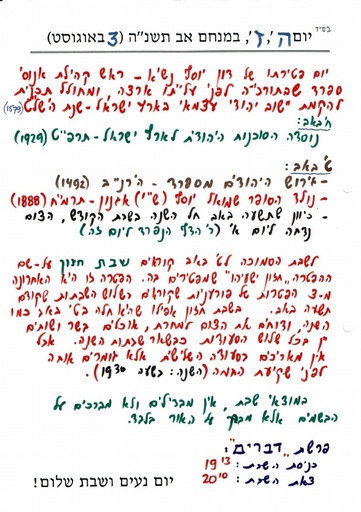 בס״ד
יום ה', ז', במנחם אב תשנ״ה (3 באוגוסט)
יום פטירתו של דון יוסף נשיא - ראש קהילת אנוסי
ספרד שבתורכיה לפני עלייתו ארצה, ומחולל תכנית
להקמת "ישוב יהודי עצמאי בארץ ישראל - שנת ה'של״ט (1579)
ח' באב:
נוסדה הסוכנות היהודית לארץ ישראל - תרפ״ט (1929)
ט' באב:
- גירוש היהודים מספרד - ה'רנ״ב (1492)
- נולד הסופר שמואל יוסף (ש״י) עגנון - תרמ״ח (1888)
- כיוון שתשעה באב חל השנה בשבת הקודש, הצום
נדחה ליום א' (ר' הדף הנפרד ליום זה)
לשבת הסמוכה לט' באב קוראים שבת חזון על-שם
ההפטרה "חזון ישעיהו" שמפטירים בה. הפטרה זו היא האחרונה
מ-3 הפטרות של פורענות שקוראים בשלוש השבתות שקודם
תשעה באב. בשבת חזון אפילו שהיא חלה בט' באב כמו
השנה, ודוחים את הצום למחרת, אוכלים בשר ושותים
יין בכל שלוש הסעודות כבשאר שבתות השנה. אבל
אין מאריכים בסעודה השלישית אלא גומרים אותה
לפני שקיעת החמה (השנה: בשעה 19³⁰).
במוצאי שבת, אין מבדילים ולא מברכים על
הבשמים אלא מברך על האור בלבד.
פרשת "דברים":
כניסת השבת: 19¹³
צאת השבת: 20¹⁰
יום נעים ושבת שלום!